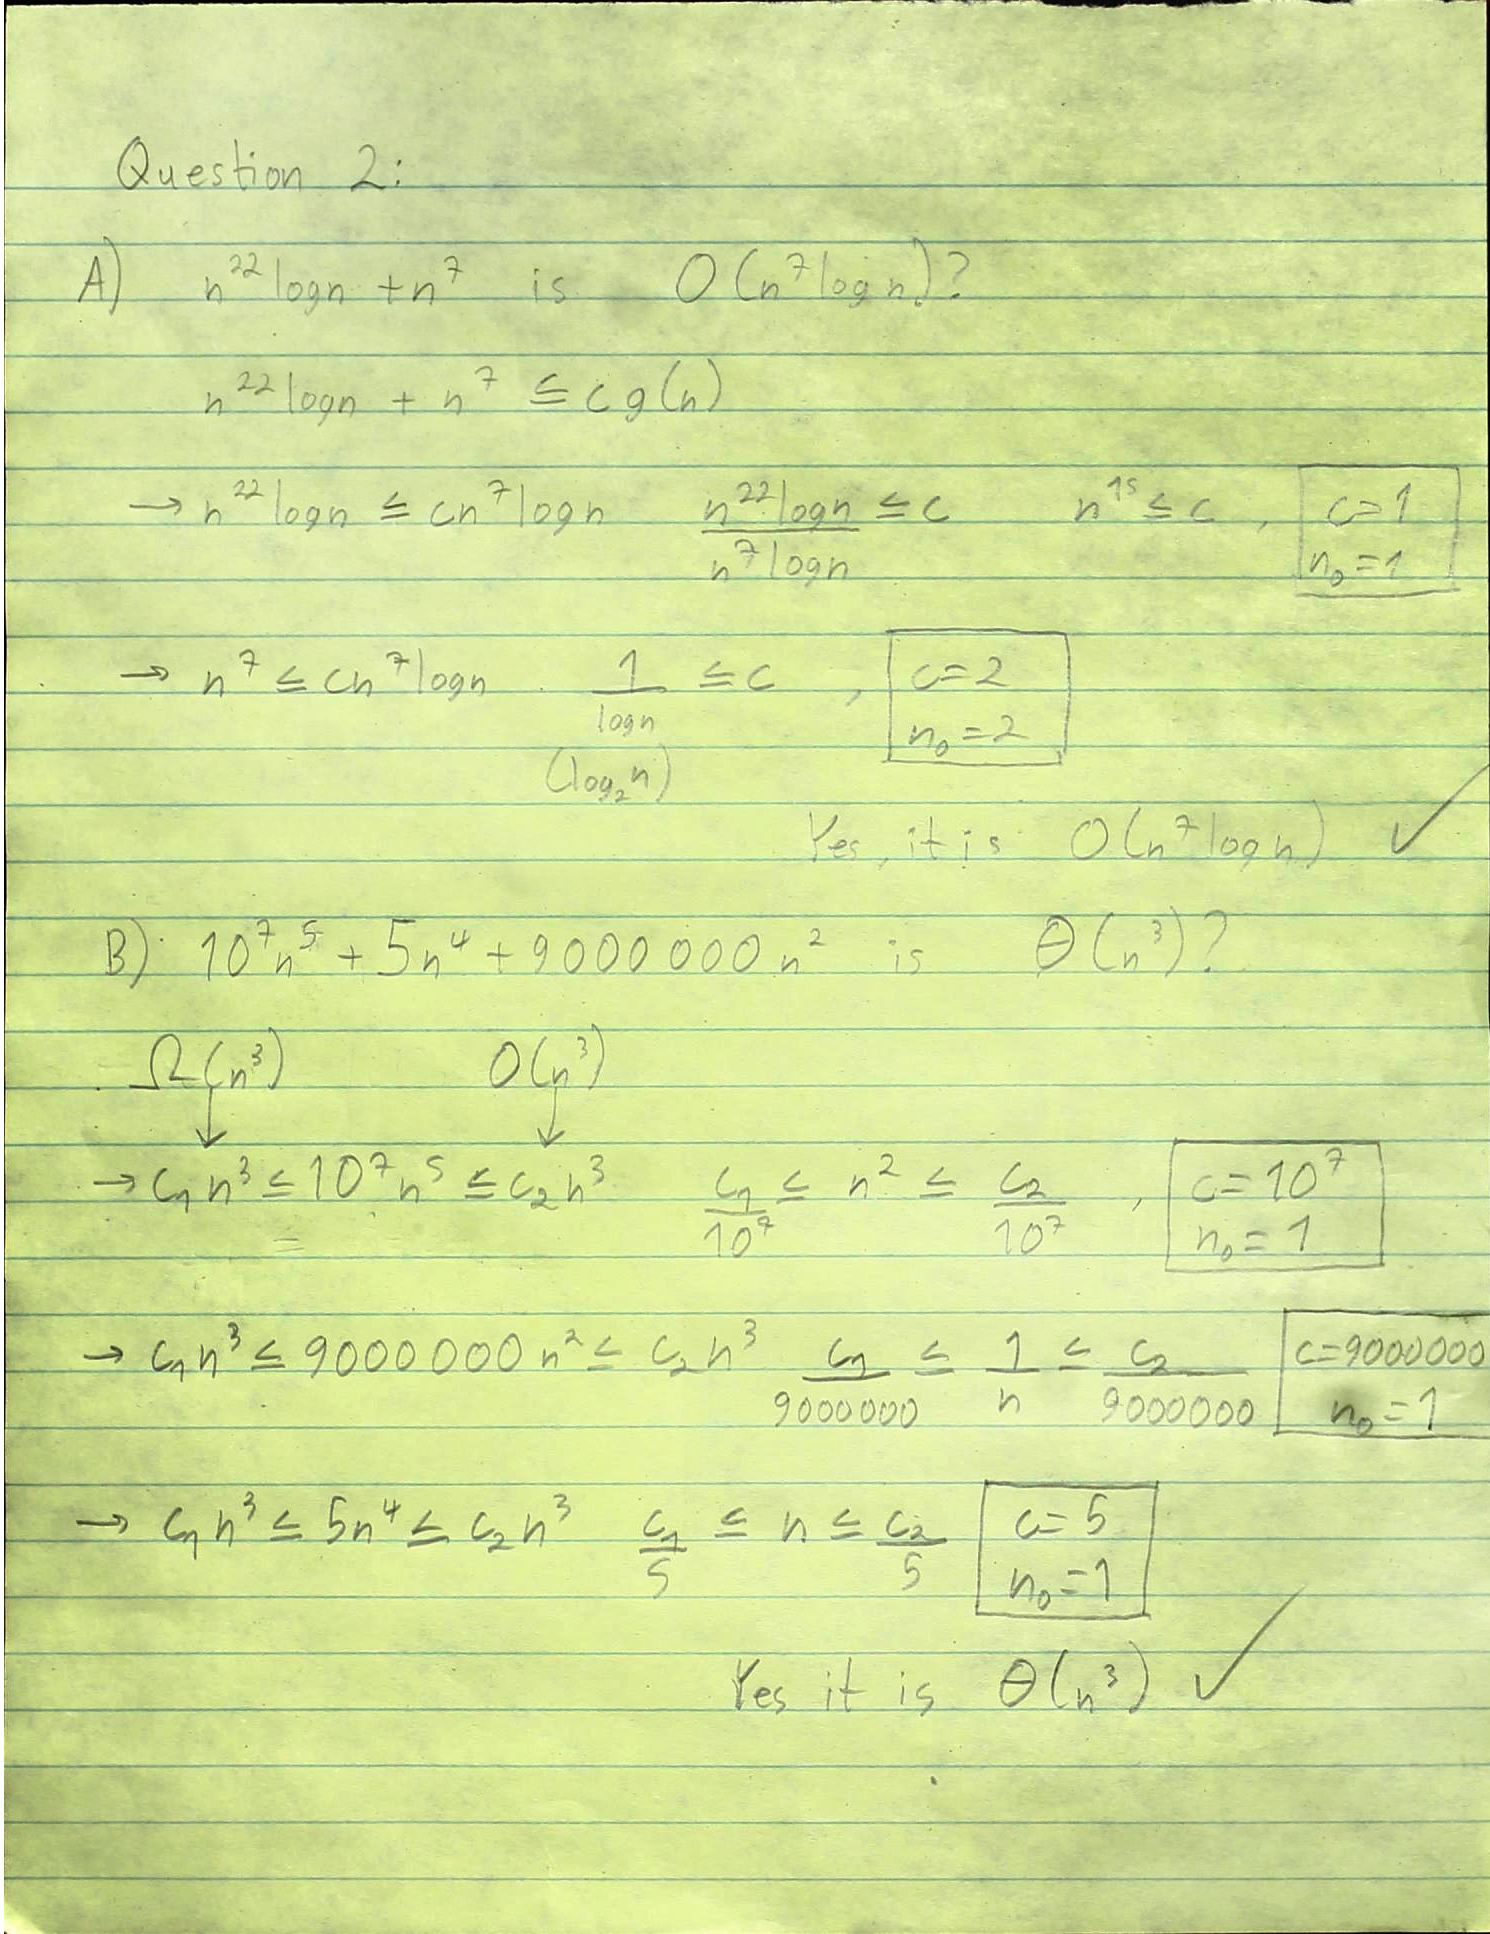 Question 2:
A) n²² logn + n⁷ is O(n⁷ logn)?
n²² logn + n⁷ ≤ c g(n)
→ n²² logn ≤ cn⁷ logn n²² logn / n⁷ logn ≤ c n¹⁵ ≤ c , c=1 n₀=1
→ n⁷ ≤ cn⁷ logn 1 / logn ≤ c , c=2 n₀=2
(log₂n)
Yes, it is O(n⁷ logn) ✓
B) 10⁷n⁵ + 5n⁴ + 9000000n² is Θ(n³)?
Ω(n³) O(n³)
↓ ↓
→ c₁n³ ≤ 10⁷n⁵ ≤ c₂n³ c₁/10⁷ ≤ n² ≤ c₂/10⁷ , c=10⁷ n₀=1
→ c₁n³ ≤ 9000000n² ≤ c₂n³ c₁/9000000 ≤ 1/n ≤ c₂/9000000 c=9000000 n₀=1
→ c₁n³ ≤ 5n⁴ ≤ c₂n³ c₁/5 ≤ n ≤ c₂/5 c=5 n₀=1
Yes it is Θ(n³) ✓